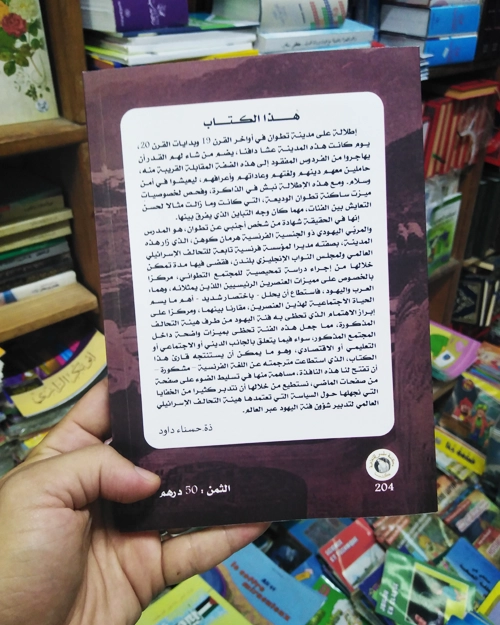 هذا الكتاب
إطلالة على مدينة تطوان في أواخر القرن 19 وبدايات القرن 20،
يوم كانت هذه المدينة عشا دافئا، يضم من شاء لهم القدر أن
يهاجروا من الفردوس المفقود إلى هذه الضفة المقابلة القريبة منه،
حاملين معهم دينهم ولغتهم وعاداتهم وأعرافهم، ليعيشوا في أمن
وسلام. ومع هذه الإطلالة نبش في الذاكرة، وفحص لخصوصيات
ميزت ساكنة تطوان الوديعة، التي كانت وما زالت مثالا لحسن
التعايش بين الفئات، مهما كان وجه التباين الذي يفرق بينها.
إنها في الحقيقة شهادة من شخص أجنبي عن تطوان، هو المدرس
والمربي اليهودي ذو الجنسية الفرنسية هرمان كوهن، الذي زار هذه
المدينة، بصفته مديرا لمؤسسة فرنسية تابعة للتحالف الإسرائيلي
العالمي ولمجلس النواب الإنجليزي بلندن، فقضى فيها مدة تمكن
خلالها من إجراء دراسة تمحيصية للمجتمع التطواني، مركزا
بالخصوص على مميزات العنصرين الرئيسيين اللذين يمثلانه، وهما،
العرب واليهود، فاستطاع أن يحلل - باختصار شديد - أهم ما يسم
الحياة الاجتماعية لهذين العنصرين، مقارنا بينهما، ومركزا على
إبراز الاهتمام الذي تحظى به فئة اليهود من طرف هيئة التحالف
المذكورة، مما جعل هذه الفئة تحظى بميزات واضحة داخل
المجتمع المذكور، سواء فيما يتعلق بالجانب الديني أو الاجتماعي أو
التعليمي أو الاقتصادي، وهو ما يمكن أن يستنتجه قارئ هذا
الكتاب، الذي استطاعت مترجمته عن اللغة الفرنسية - مشكورة -
أن تفتح لنا هذه النافذة، مساهمة منها في تسليط الضوء على صفحة
من صفحات الماضي، نستطيع من خلالها أن نتدبر كثيرا من الخفايا
التي نجهلها حول السياسة التي تعتمدها هيئة التحالف الإسرائيلي
العالمي لتدبير شؤون فئة اليهود عبر العالم.
ذة. حسناء داود
الثمن : 50 درهم
204